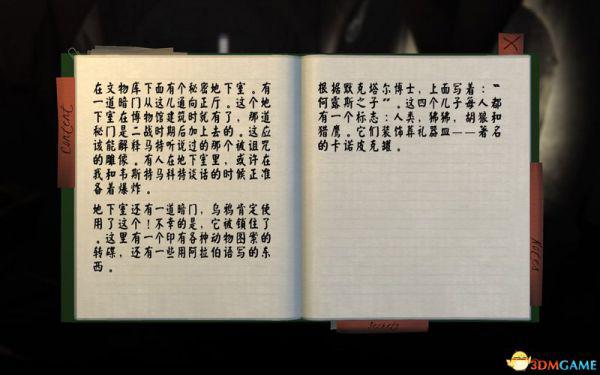 在文物库下面有个秘密地下室。有
一道暗门从这儿通向正厅。这个地
下室在博物馆建筑时就有了，那道
秘门是二战时期后加上去的。这应
该能解释马特听说过的那个被诅咒
的雕像。有人在地下室里，或许在
我和韦斯特马科特谈话的时候正准
备着爆炸。
地下室还有一道暗门，乌鸦肯定使
用了这个！不幸的是，它被锁住了
。这里有一个印有各种动物图案的
转碟，还有一些用阿拉伯语写的东
西。
根据默克塔尔博士，上面写着：“
何露斯之子”。这四个儿子每人都
有一个标志：人类，狒狒，胡狼和
猎鹰。它们装饰葬礼器皿——著名
的卡诺皮克罐。
Content
Notes
Secrets
X
3DMGAME